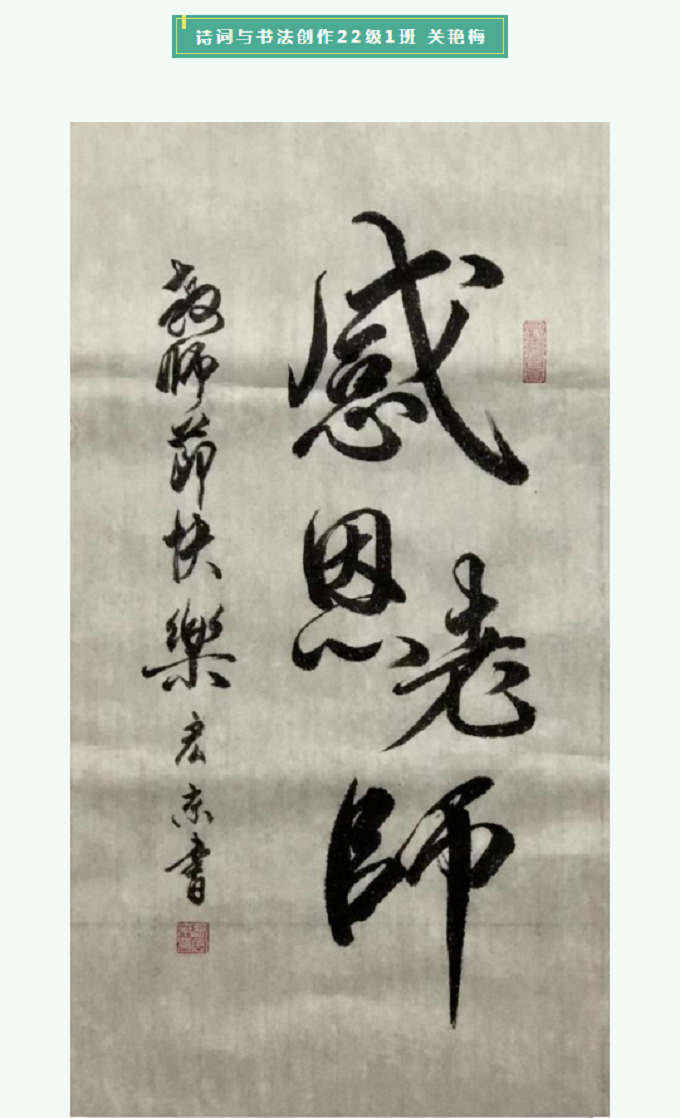 诗词与书法创作22级1班 关艳梅
感恩老師
教師節快樂 宏京書